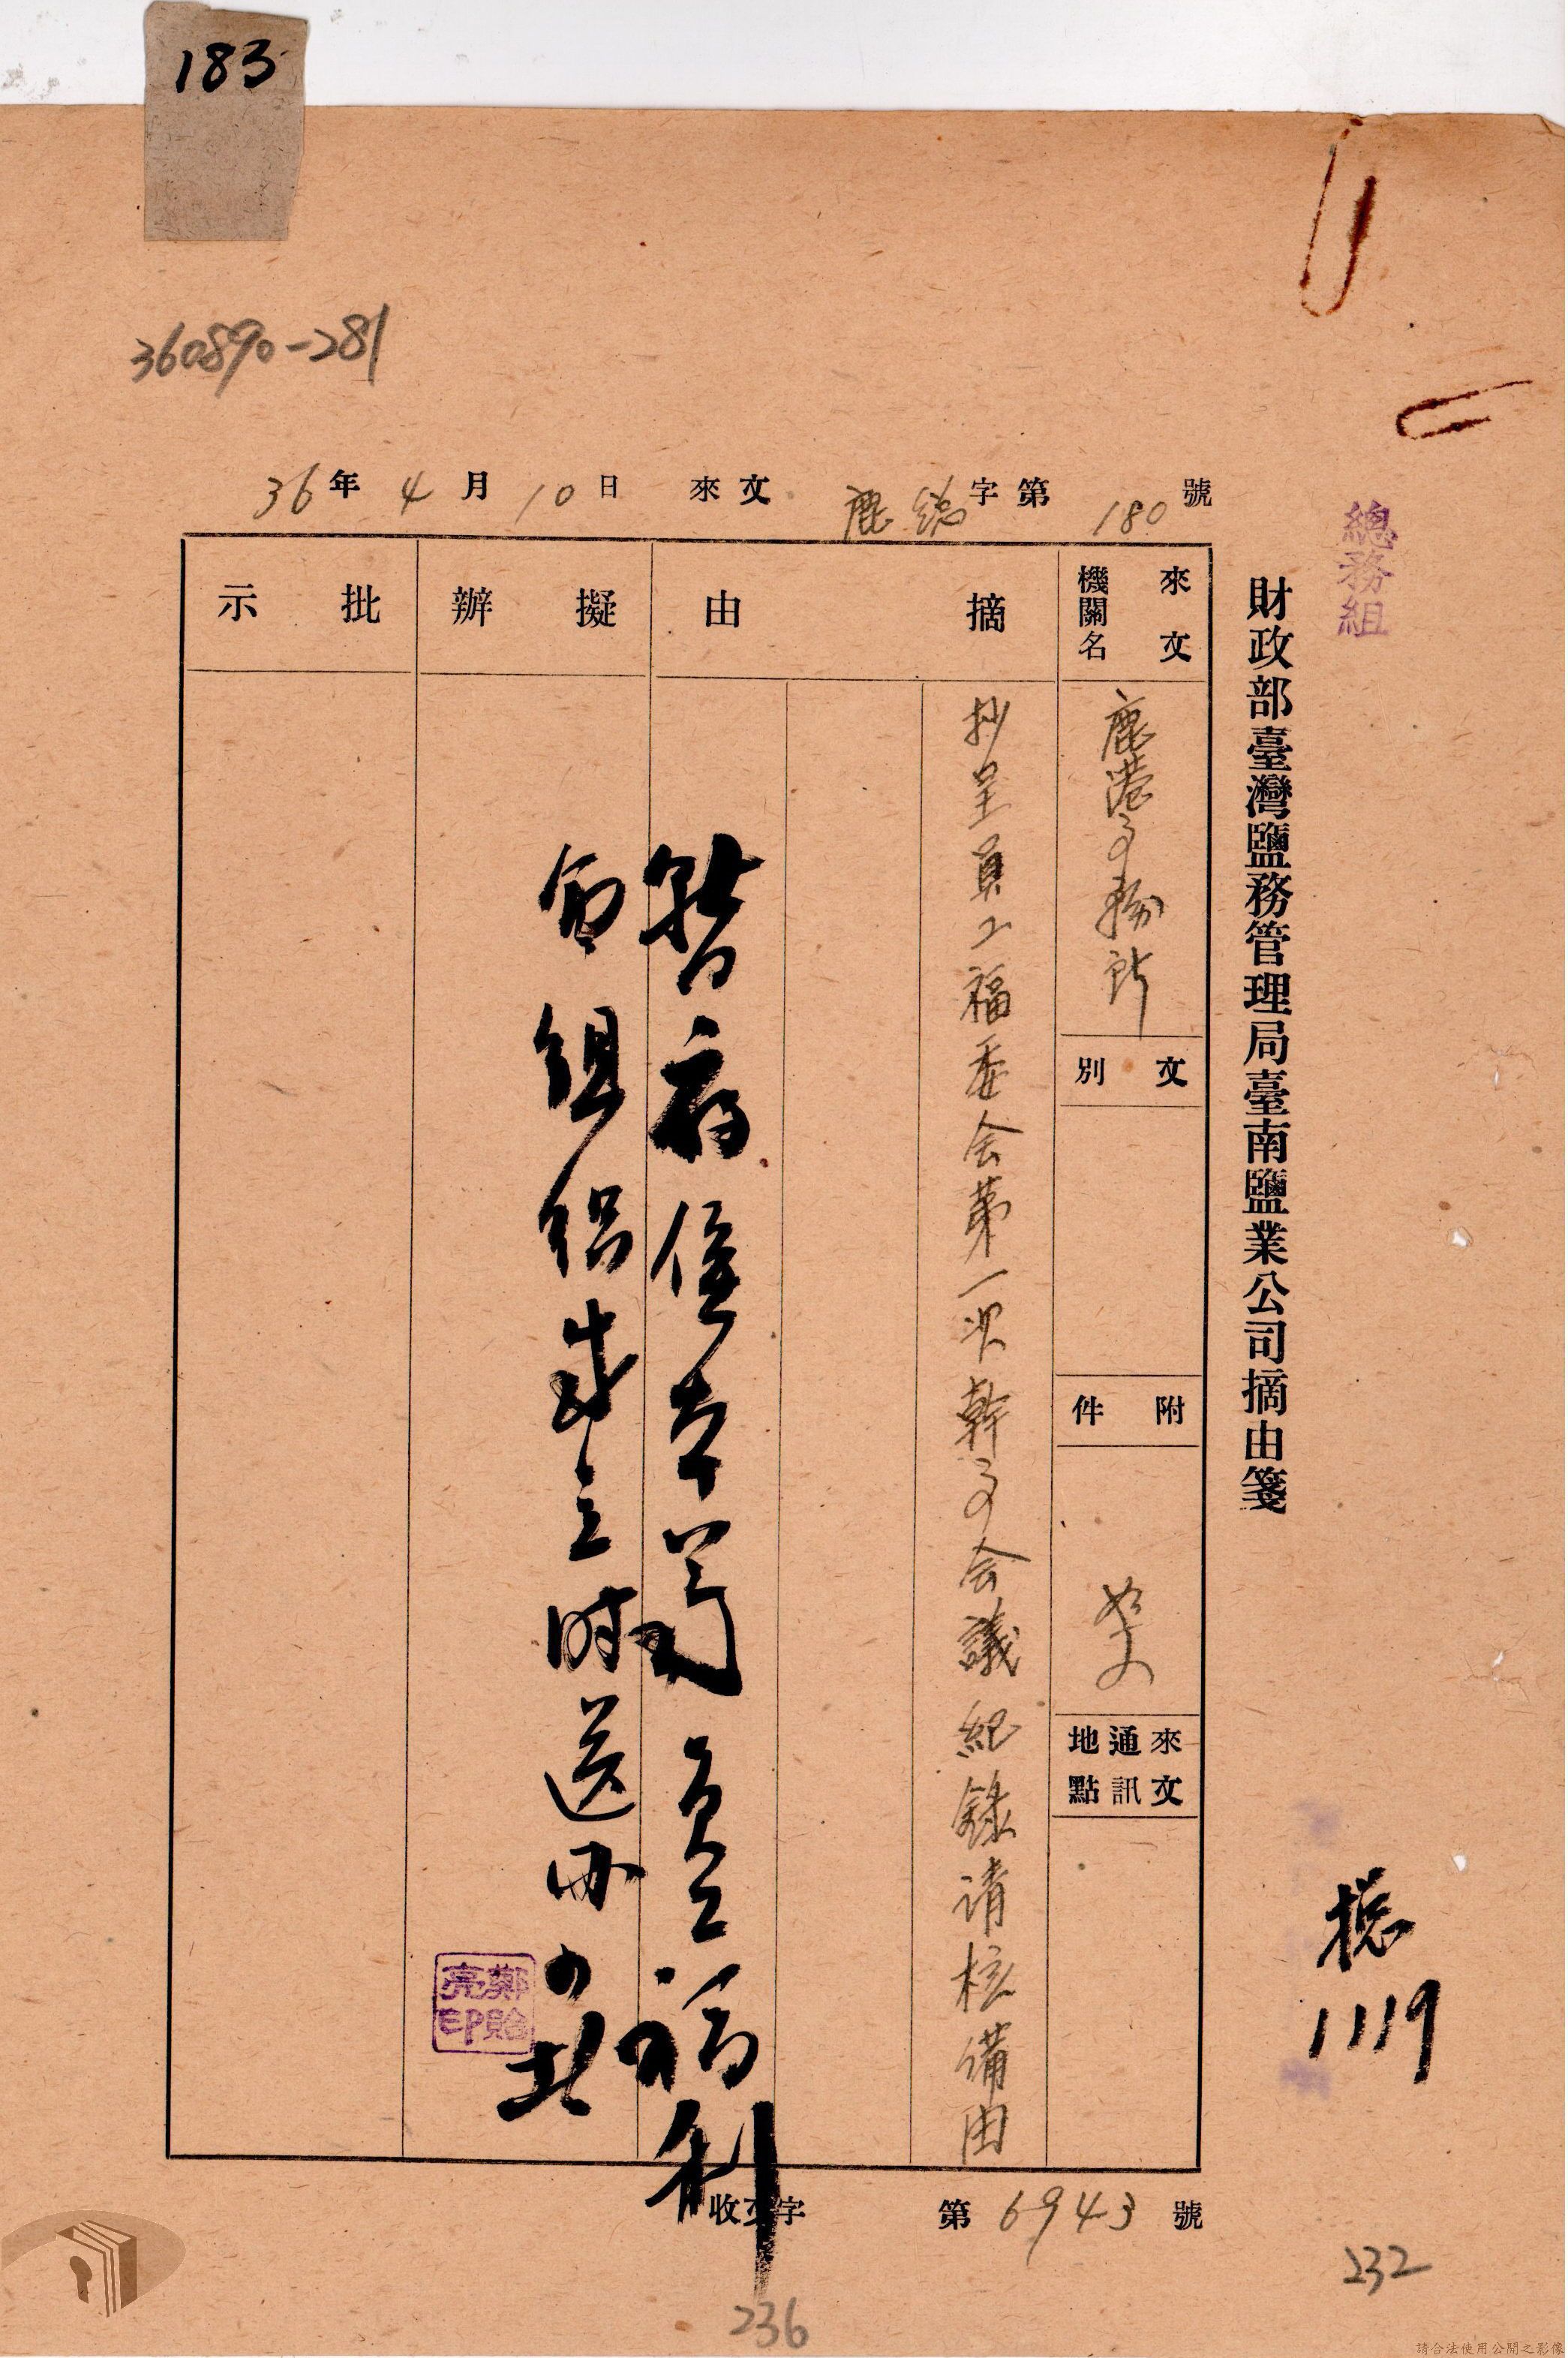 183
360890-281
總務組
財政部臺灣鹽務管理局臺南鹽業公司摘由箋
36年4月10日 來文 鹿總字第180號
來文機關名
鹿港事務所
文別
附件
如文
來文通訊地點
摘由
抄呈員工福委会第一次幹事会議紀錄请核備由
擬辦
暫存俟本局員工福利
委組織成立時送
批示
鄭貽亮印
總
1119
收文字第6943號
232
236
請合法使用公開之影像